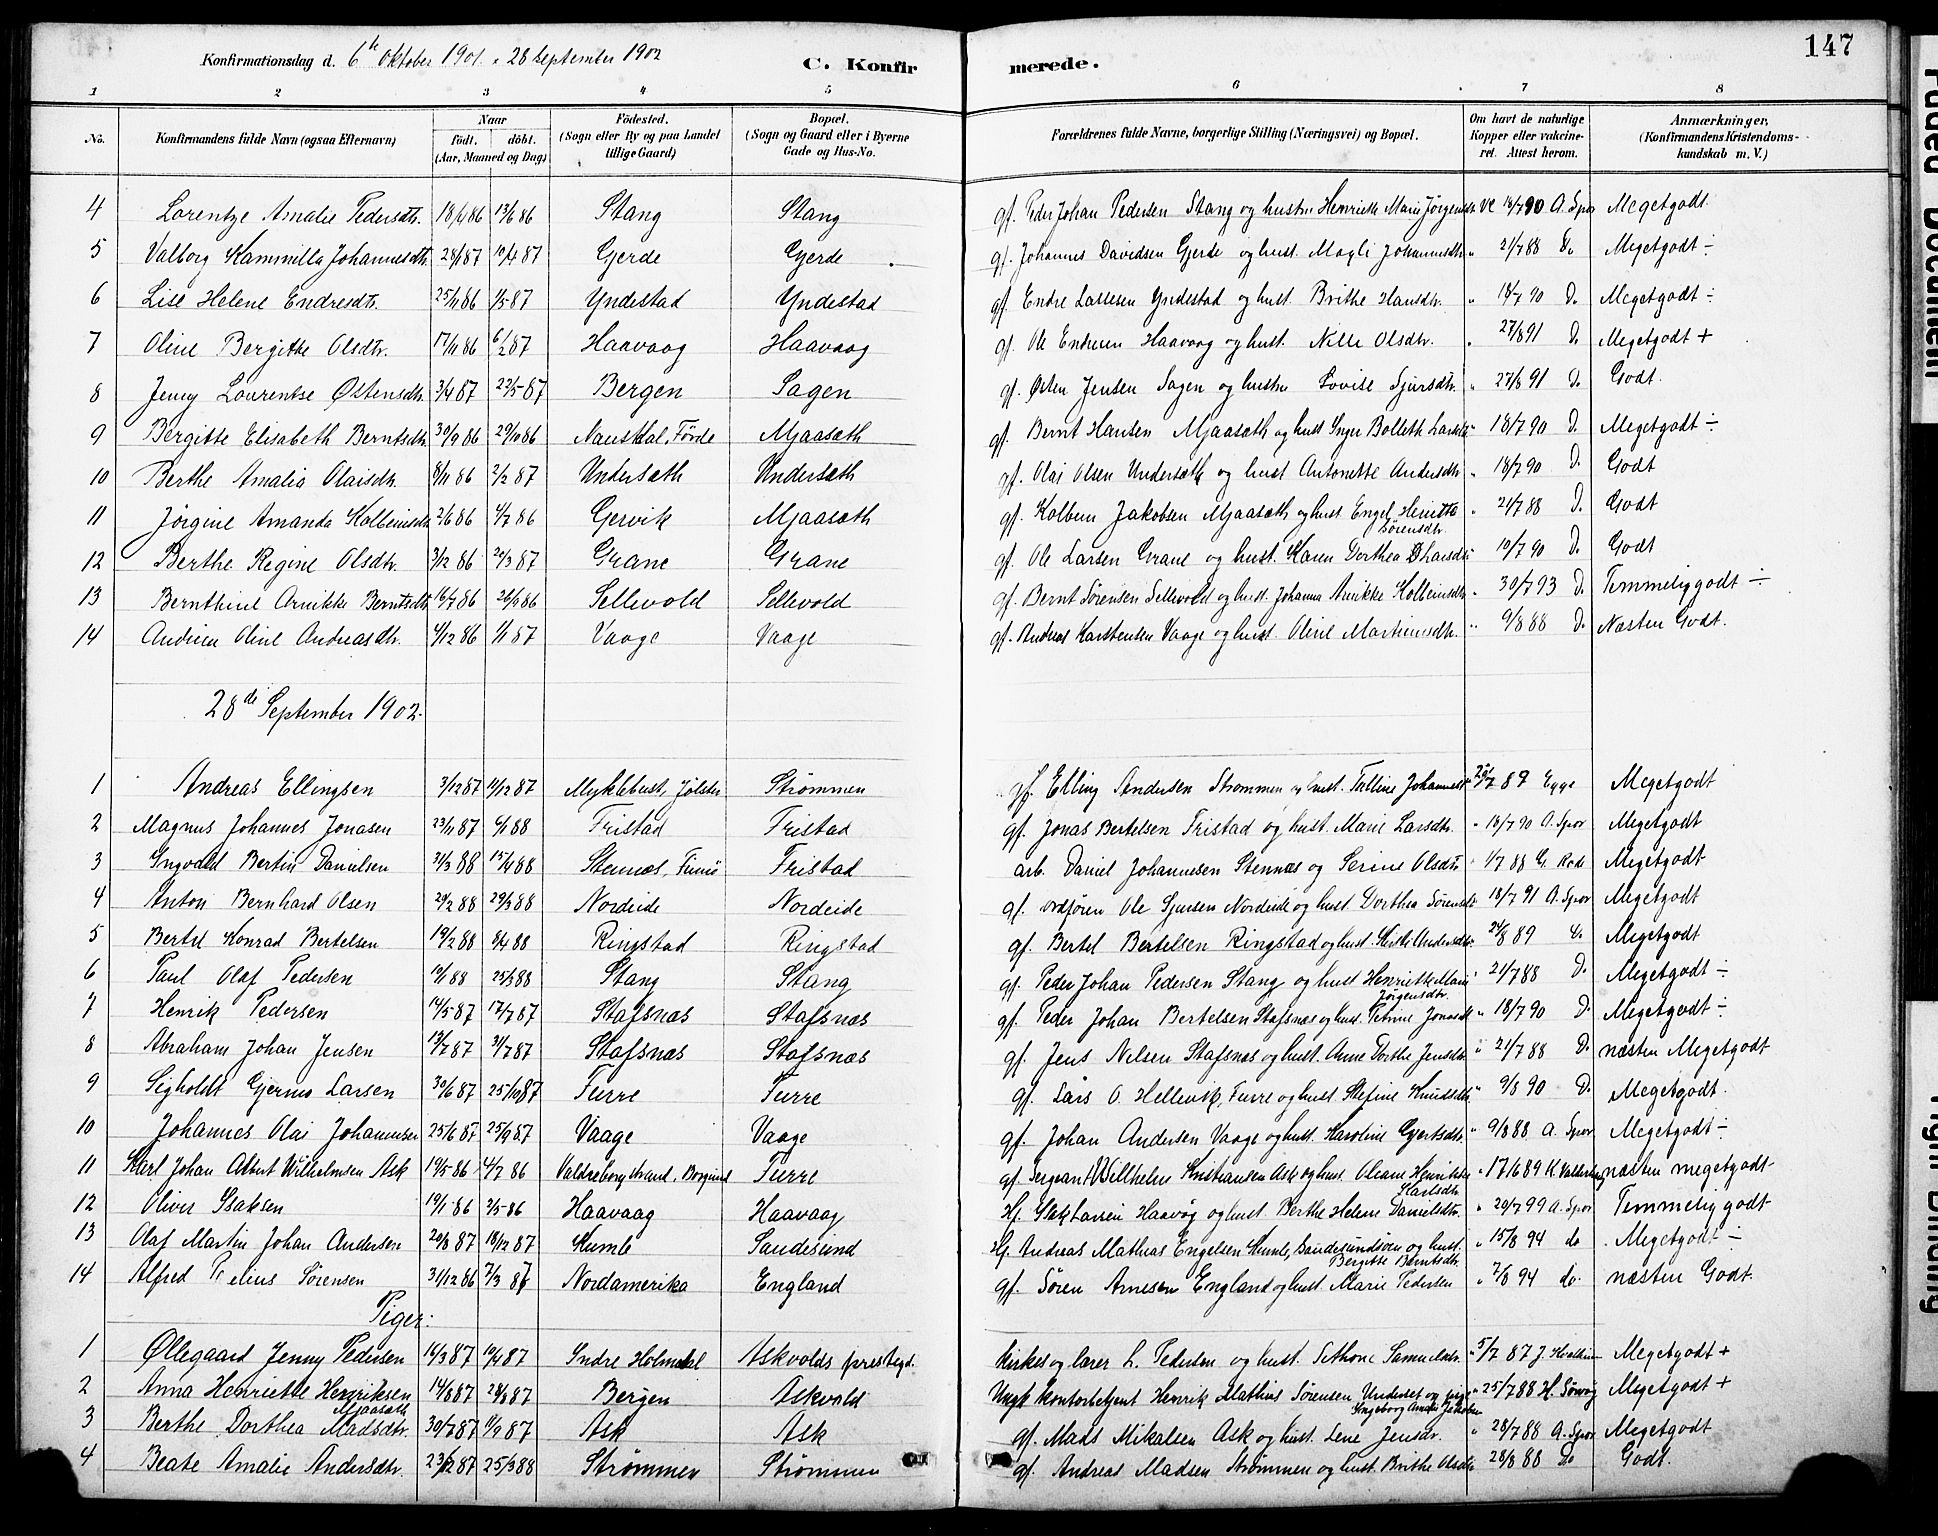 Konfirmationsdag d. 6te Oktober 1901. 28 September 1902 C. Konfirmerede. 147
1 2 3 4 5 6 7 8
No. Konfirmandens fulde Navn (ogsaa Efternavn) Naar født. døbt. (Aar, Maaned og Dag) Fødested. (Sogn eller By og paa Landet tillige Gaard) Bopæl. (Sogn og Gaard eller i Byerne Gade og Hus-No. Forældrenes fulde Navne, borgerlige Stilling (Næringsvei) og Bopæl. Om havt de naturlige Kopper eller vakcineret. Attest herom. Anmærkninger, (Konfirmandens Kristendomskundskab m. V.)
4 Lorentze Amalie Pedersdtr. Stang Stang gf. Peder Johan Pedersen Stang og hustru Henriette Marie Jørgensdtr. A. Spor Megetgodt
5 Valborg Kammilla Johannesdtr. Gjerde Gjerde gf. Johannes Davidsen Gjerde og hust. Magli Johannesdtr. " 21/7 88 Do Megetgodt ÷
6 Lise Helene Endresdtr. 25/11 86 1/5 87 Yndestad Yndestad gf. Endre Lassesen Yndestad og hust. Brithe Hansdtr. " 18/7 90 Do Megetgodt ÷
7 Oline Bergitte Olsdtr. 17/11 86 6/2 87 Haavaag Haavaag gf. Ole Endresen Haavaag og hust. Nille Olsdtr. " 27/8 91 Do Megetgodt +
8 Jenny Lourentse Østensdtr. 3/4 87 22/5 87 Bergen Sagen gf. Østen Jensen Sagen og hustru Lovise Sjursdtr. " 27/8 91 Do Godt.
9 Bergitte Elisabeth Berntsdtr. 30/9 86 29/10 86 Naustdal, Førde Mjaasæth gf. Bernt Hansen Mjaasæth og hust Inger Bolleth Larsdtr " 18/7 90 Do Megetgodt ÷
10 Berthe Amalia Olaisdtr. 8/11 86 2/2 87 Undersæth Undersæth gf. Olai Olsen Undersæth og hust Antonette Andersdtr " 18/7 90 Do Godt
11 Jørgine Amanda Kolbeinsdtr 2/6 86 4/7 86 Gjervik Mjaasæth gf. Kolbein Jakobsen Mjaasæth og hust Engel Sørensdtr. " 21/7 88 Do Godt
12 Berthe Regine Olsdtr. 3/12 86 Grane Grane gf. Ole Larsen Grane og hust. Karen Dorthea " 10/7 90 Do Godt
13 Bernthine Annikke Berntsdtr. Sellevold Sellevold gf. Bernt Sørensen Sellevold og hust. Johanna Annikke Kolbeinsdtr " 30/7 93 Do Temmeliggodt ÷
14 Andrea Oline Andreasdtr. 4/12 86 1/1 87 Vaage Vaage gf. Andreas Karstensen Vaage og hust. Oline Martinusdtr. " 9/8 88 Do Næsten Godt.
28de September 1902.
1 Andreas Ellingsen 3/12 87 Myklebust, Jølster Strømmen gf. Elling Andersen Strømmen og hust. Talline Johannesdtr 89 Egge Megetgodt
2 Magnus Johannes Jonasen 23/11 87 6/1 88 Fristad Fristad gf. Jonas Bertelsen Fristad og hust. Marie Larsdtr. " 18/7 90 A. Spor Megetgodt
3 Ingvald Bertin Danielsen 88 15/4 88 Stennæs, Fristad arb. Daniel Johannesen Stennæs og Serine Olsdtr " 1/7 88 Megetgodt
4 Anton Bernhard Olsen 29/2 88 29/3 88 Nordeide Nordeide gf. ordføren Ole Sjursen Nordeide og hust Dorthea Sørensdtr 18/7 91 A. Spor Megetgodt
5 Bertel Konrad Bertelsen 19/2 88 8/4 88 Ringstad Ringstad gf. Bertel Bertelsen Ringstad og hust. Andersdtr 89 Megetgodt
6 Paul Olaf Pedersen 88 25/3 88 Stang Stang gf. Peder Johan Pedersen Stang og hust Henriette Marie Jørgensdtr. " 21/7 88 Do Megetgodt ÷
7 Henrik Pedersen 14/5 87 17/7 87 Stafsnæs Stafsnæs gf. Peder Johan Bertelsen Stafsnæs og hust. Petrine Jonasdtr " 18/7 90 Do Megetgodt ÷
8 Abraham Johan Jensen 13/7 87 31/7 87 Stafsnæs Stafsnæs gf. Jens Nilsen Stafsnæs og hust. Anne Dorthe Jensdtr " 21/7 88 Do næsten Megetgodt
9 Sigholdt Gjermo Larsen 30/6 87 25/10 87 Furre Furre gf. Lars O. Hellevik, Furre og hust Stefine Knudsdtr " 9/8 90 Do Megetgodt.
10 Johannes Olai Johannesen 25/6 87 25/9 87 Vaage Vaage gf. Johan Andersen Vaage og hust. Karoline Gjertsdtr " 9/8 88 A. Spor Megetgodt ÷
11 Karl Johan Albert Wilhelmsen Ask 19/5 86 4/7 86 Valdreborgstrand, Borgund Furre gf. Sergeant Wilhelm Kristiansen Ask og hust. Oliane Henrikke Karlsdtr. " 17/6 89 næsten megetgodt
12 Oliver Isaksen 19/1 86 2/5 86 Haavaag Haavaag Hf. Isak Larsen Haavåg og hust. Berthe Helene Danielsdtr. " 20/7 99 A. Spor Temmelig godt
13 Olaf Martin Johan Andersen 20/8 87 18/12 87 Humle Sandesund Hf. Andreas Mathias Engelsen Humle, Sandesundsøen og hust. Bergitte Berntsdtr. " 15/8 94 do Megetgodt ÷
14 Alfred Sørensen 31/12 86 7/3 87 Nordamerika England gf. Søren Arnesen England og hust. Marie Pedersen " 7/8 94 do. næsten Godt.
Piger:
1 Øllegaard Jenny Pedersen 16/3 87 10/4 87 Indre Holmedal Askvolds prestegd. Kirkes. og lærer L. Pedersen og hust. Sethone Samuelsdtr. " 5/7 87 Megetgodt +
2 Anna Henriette Henriksen Mjaasæth 14/8 87 Bergen Askvold Ungk kontorbetjent Henrik Mathias Sørensen Undersæt og pige Ingeborg Amalie Jakobsen " 25/7 88 Megetgodt +
3 Berthe Dorthea Madsdtr. 30/7 87 11/9 87 Ask Ask gf. Mads Mikalsen Ask og hust. Lene Jensdtr. " 28/7 88 A. Spor Megetgodt
4 Beate Amalie Andersdtr. 23/12 87 25/3 88 Strømmen Strømmen gf. Andreas Madsen Strømmen og hust. Brithe Olsdtr " 28/8 88 Do Godt.
Faded Document
Tight Binding